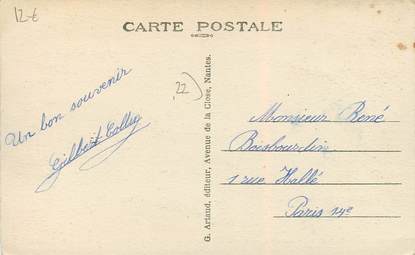 12-€
CARTE POSTALE
22)
Un bon souvenir
Gilbert
G. Artaud, éditeur, Avenue de la Close, Nantes.
Monsieur René
Boisbourdin
1 rue Hallé
Paris 14e